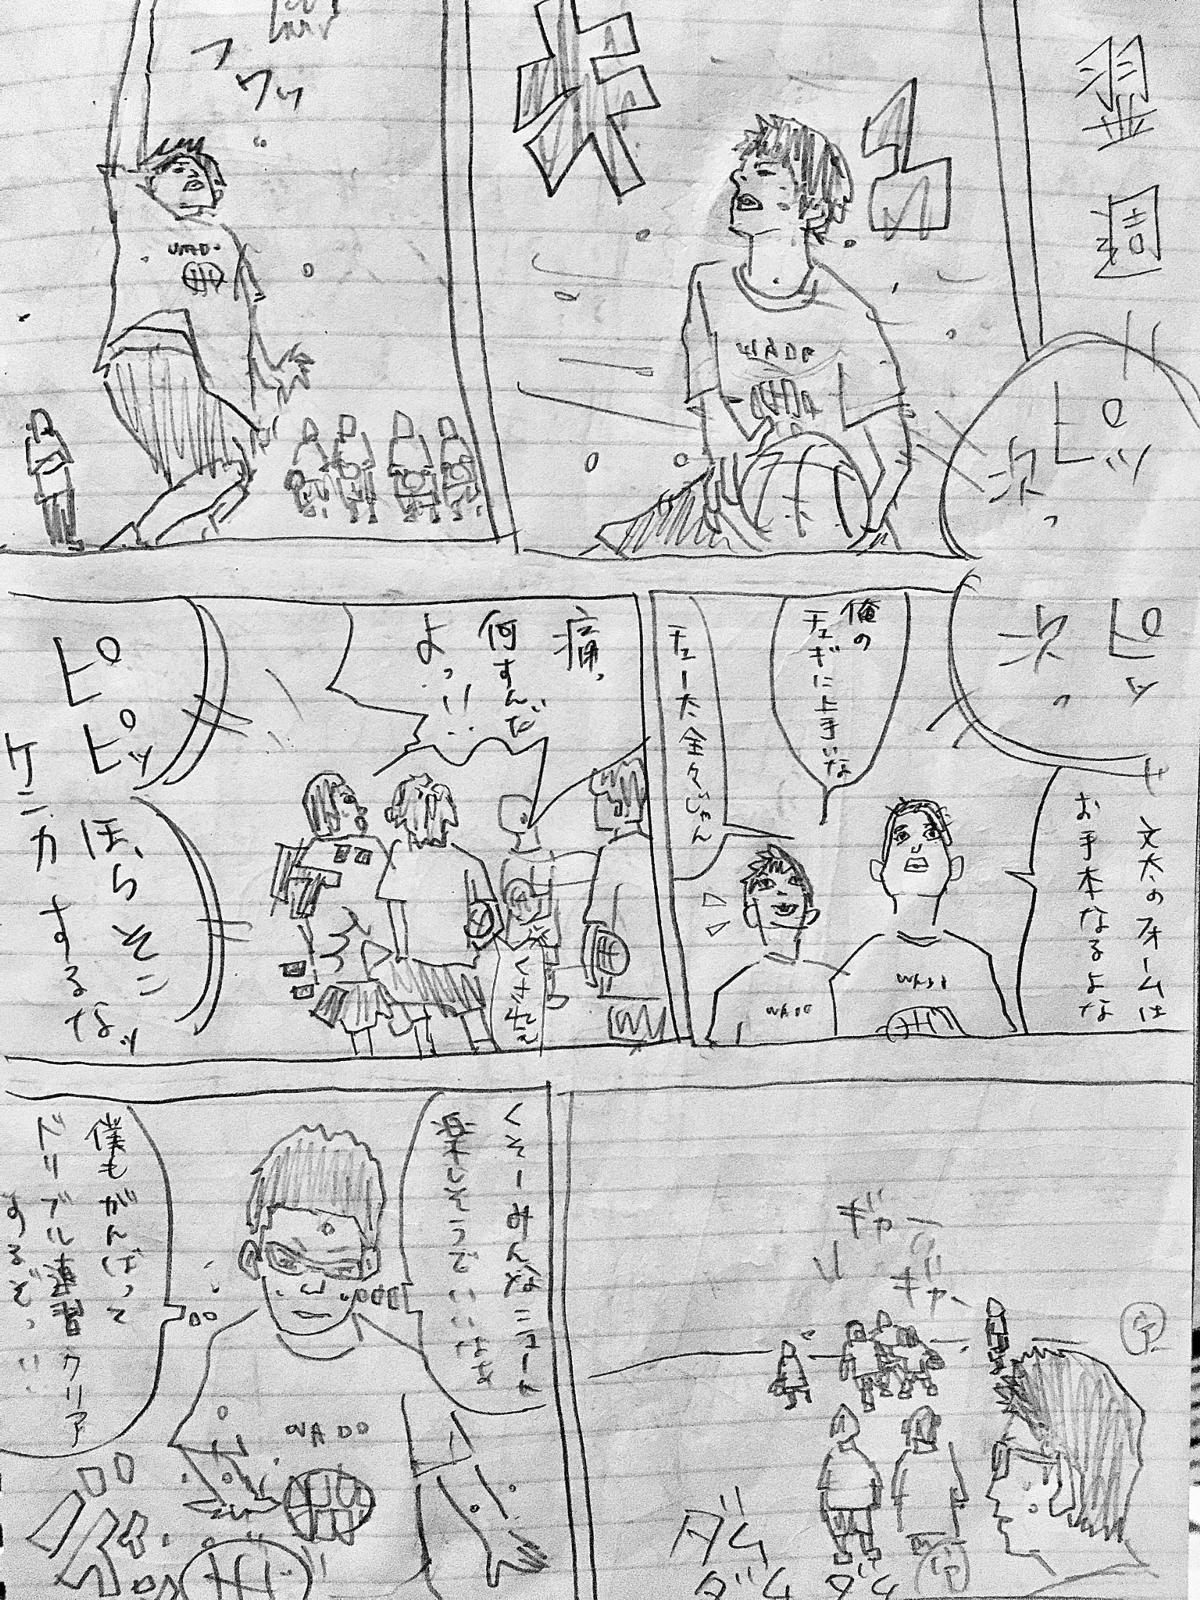 翌週
ピッ
次っ
キュ
フワッ
WADO
WADO
ピッ
次っ
文太のフォームは
お手本なるよな
俺の
次に上手いな
チュー太全々じゃん
WADO
WADO
痛っ
何すんだ
よっ!!
くせぇ
ピピッ
ほらそこ
ケンカするなッ
ギャー
ギャー
ダム
ダム
ダム
くそーみんなシュート
楽しそうでいいなぁ
僕もがんばって
ドリブル練習クリア
するぞっ!!
WADO
ダム